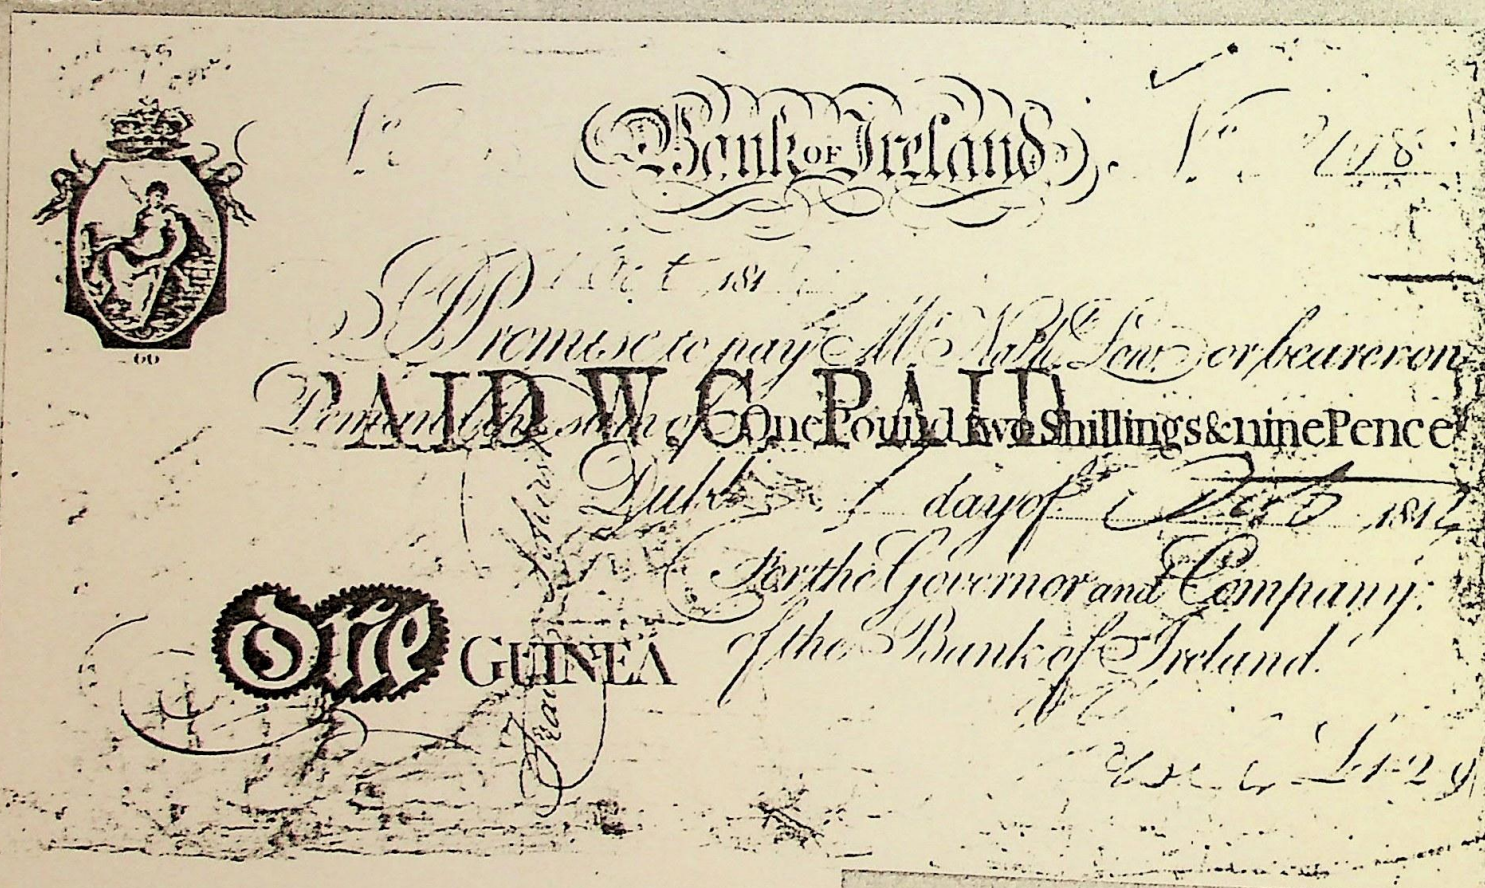 No
Bank of Ireland.
No
Oct 181
I Promise to pay Mr. Nathl. Low or bearer on
Demand the sum of One Pound two Shillings & nine Pence
PAID W. C. PAID
Dublin 1 day of Octo 1812
For the Governor and Company
of the Bank of Ireland.
One GUINEA
£1-2-9